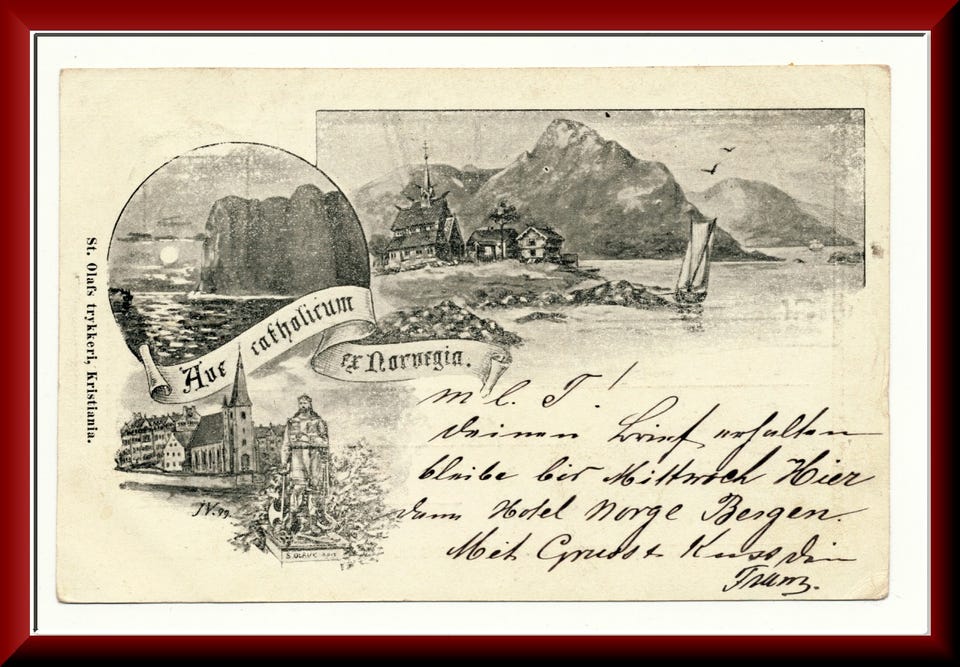 St. Olafs trykkeri, Kristiania.
Ave catholicum
ex Norvegia.
m l. T!
deinen Brief erhalten
bleibe bis Mittwoch Hier
dann Hotel Norge Bergen.
Mit Gruss + Kuss dein
Franz.
S. OLAVE